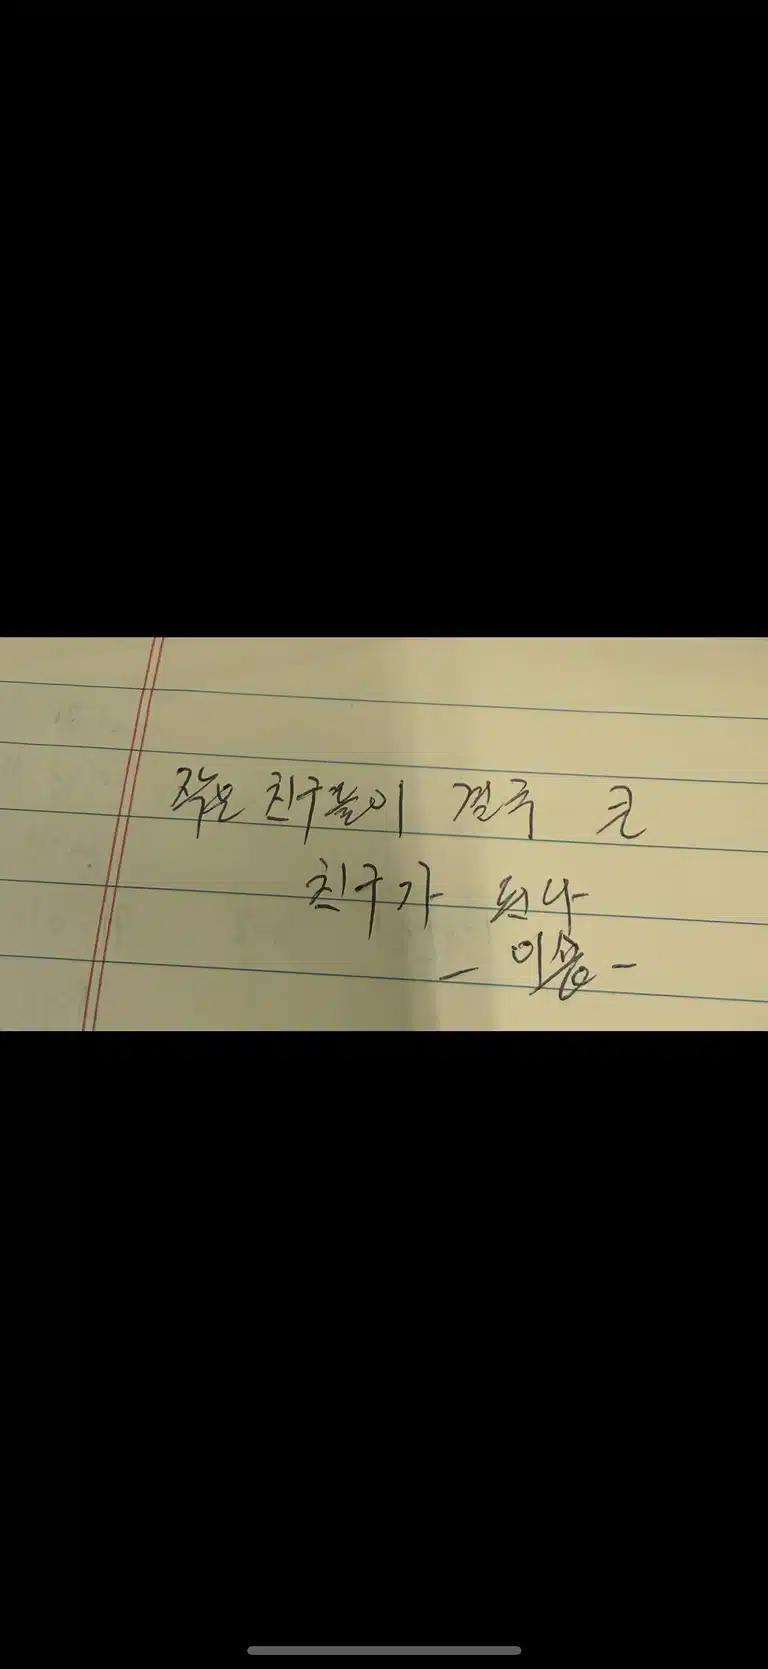 작은 친구들이 결국 큰
친구가 된다
- 이솝 -